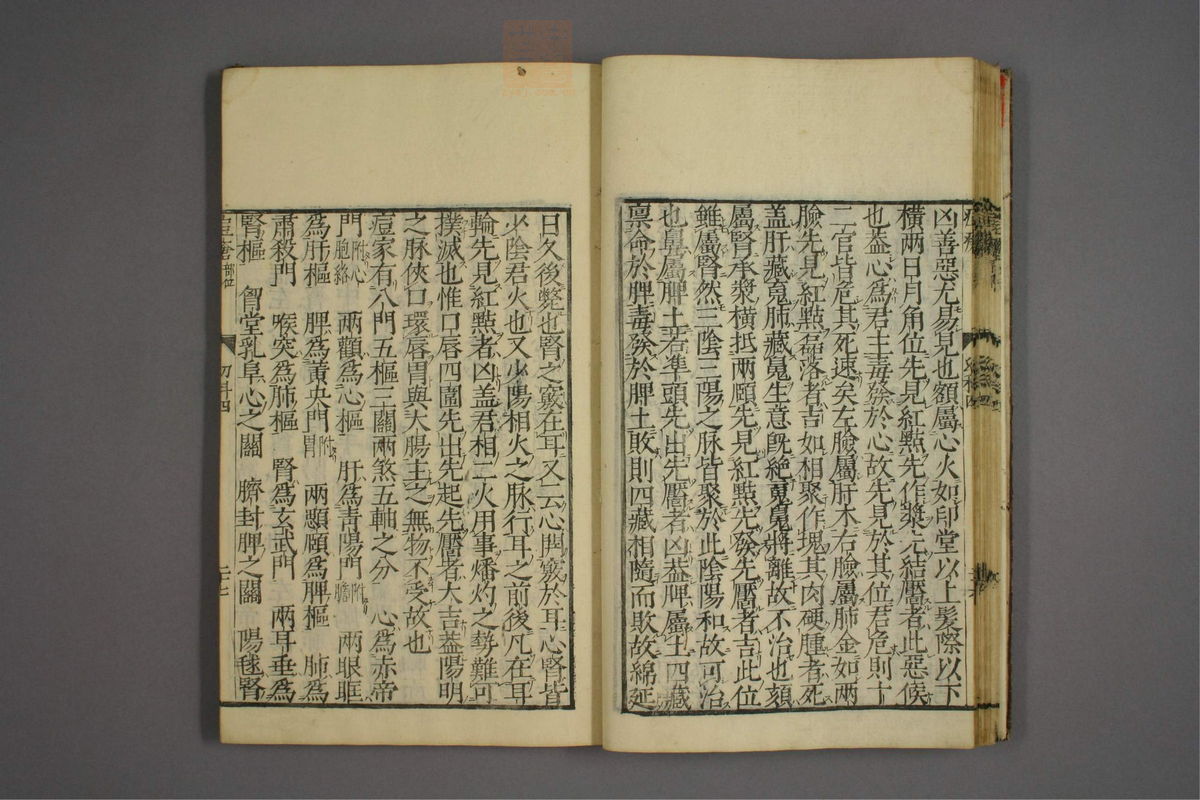 凶善惡尤易見也額屬心火如印堂以上髮際以下
橫兩日月角位先見紅點先作漿先結靨者此惡候
也蓋心為君主毒發於心故先見於其位君危則十
二官皆危其死速矣左臉屬肝木右臉屬肺金如兩
臉先見紅點磊落者吉如相聚作塊其肉硬腫者死
盖肝藏魂肺藏魄生意既絕魂魄將離故不治也頦
屬腎承漿橫抵兩頤先見紅點先發先靨者吉此位
雖屬腎然三陰三陽之脉皆聚於此陰陽和故可治
也鼻屬脾土若準頭先出先靨者凶蓋脾屬土四藏
禀命於脾毒發於脾土敗則四藏相隨而敗故綿延
日久後斃也腎之竅在耳又云心開竅於耳心腎皆
少陰君火也又少陽相火之脉行耳之前後凡在耳
輪先見紅點者凶盖君相二火用事燔灼之勢難可
撲滅也惟口唇四圍先出先起先靨者大吉蓋陽明
之脉俠口環唇胃與大腸主之無物不受故也
痘家有八門五樞三關兩煞五軸之分 心為赤帝
門附心胞絡 兩顴為心樞 肝為青陽門附膽 兩眼眶
為肝樞 脾為黃央門附胃 兩顋頤為脾樞 肺為
肅殺門 喉突為肺樞 腎為玄武門 兩耳垂為
腎樞 胷堂乳阜心之關 臍封脾之關 陽毬腎
痘瘡 部位
幼科四
二十七